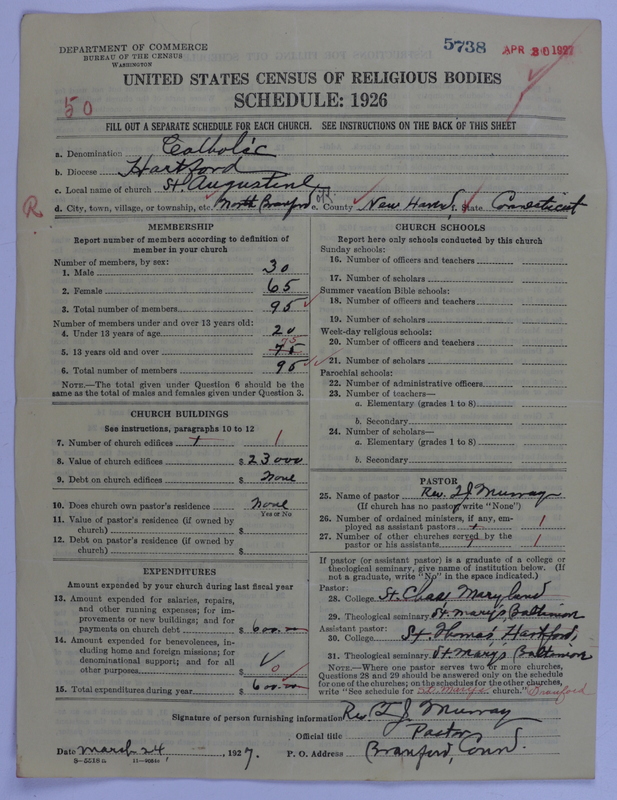 5738 APR 30 1927
DEPARTMENT OF COMMERCE
BUREAU OF THE CENSUS
WASHINGTON
UNITED STATES CENSUS OF RELIGIOUS BODIES
SCHEDULE: 1926
50
FILL OUT A SEPARATE SCHEDULE FOR EACH CHURCH. SEE INSTRUCTIONS ON THE BACK OF THIS SHEET
a. Denomination Catholic
b. Diocese Hartford
c. Local name of church St. Augustine
R d. City, town, village, or township, etc. North Branford e. County New Haven f. State Connecticut
MEMBERSHIP
Report number of members according to definition of
member in your church
Number of members, by sex:
1. Male 30
2. Female 65
3. Total number of members 95
Number of members under and over 13 years old:
4. Under 13 years of age 20
75
5. 13 years old and over 75
6. Total number of members 95
NOTE.—The total given under Question 6 should be the
same as the total of males and females given under Question 3.
CHURCH BUILDINGS
See instructions, paragraphs 10 to 12
7. Number of church edifices 1 1
8. Value of church edifices $ 23000
9. Debt on church edifices $ None
10. Does church own pastor's residence None
Yes or No
11. Value of pastor's residence (if owned by
church) $
12. Debt on pastor's residence (if owned by
church) $
EXPENDITURES
Amount expended by your church during last fiscal year
13. Amount expended for salaries, repairs,
and other running expenses; for im-
provements or new buildings; and for
payments on church debt $ 600.00
14. Amount expended for benevolences, in-
cluding home and foreign missions; for
denominational support; and for all
other purposes $ 0
15. Total expenditures during year $ 600.00
CHURCH SCHOOLS
Report here only schools conducted by this church
Sunday schools:
16. Number of officers and teachers
17. Number of scholars
Summer vacation Bible schools:
18. Number of officers and teachers
19. Number of scholars
Week-day religious schools:
20. Number of officers and teachers
21. Number of scholars
Parochial schools:
22. Number of administrative officers
23. Number of teachers—
a. Elementary (grades 1 to 8)
b. Secondary
24. Number of scholars—
a. Elementary (grades 1 to 8)
b. Secondary
PASTOR
25. Name of pastor Rev. T. J. Murray
(If church has no pastor, write "None")
26. Number of ordained ministers, if any, em-
ployed as assistant pastors 1 1
27. Number of other churches served by the
pastor or his assistants 1 1
If pastor (or assistant pastor) is a graduate of a college or
theological seminary, give name of institution below. (If
not a graduate, write "No" in the space indicated.)
Pastor:
28. College St. Chas. Maryland
29. Theological seminary St. Mary's Baltimore
Assistant pastor:
30. College St. Thomas Hartford,
31. Theological seminary St. Mary's Baltimore
NOTE.—Where one pastor serves two or more churches,
Questions 28 and 29 should be answered only on the schedule
for one of the churches; on the schedules for the other churches,
write "See schedule for St. Mary's church." Branford
Signature of person furnishing information Rev. T. J. Murray
Official title Pastor
Date March 24, 1927. P. O. Address Branford, Conn.